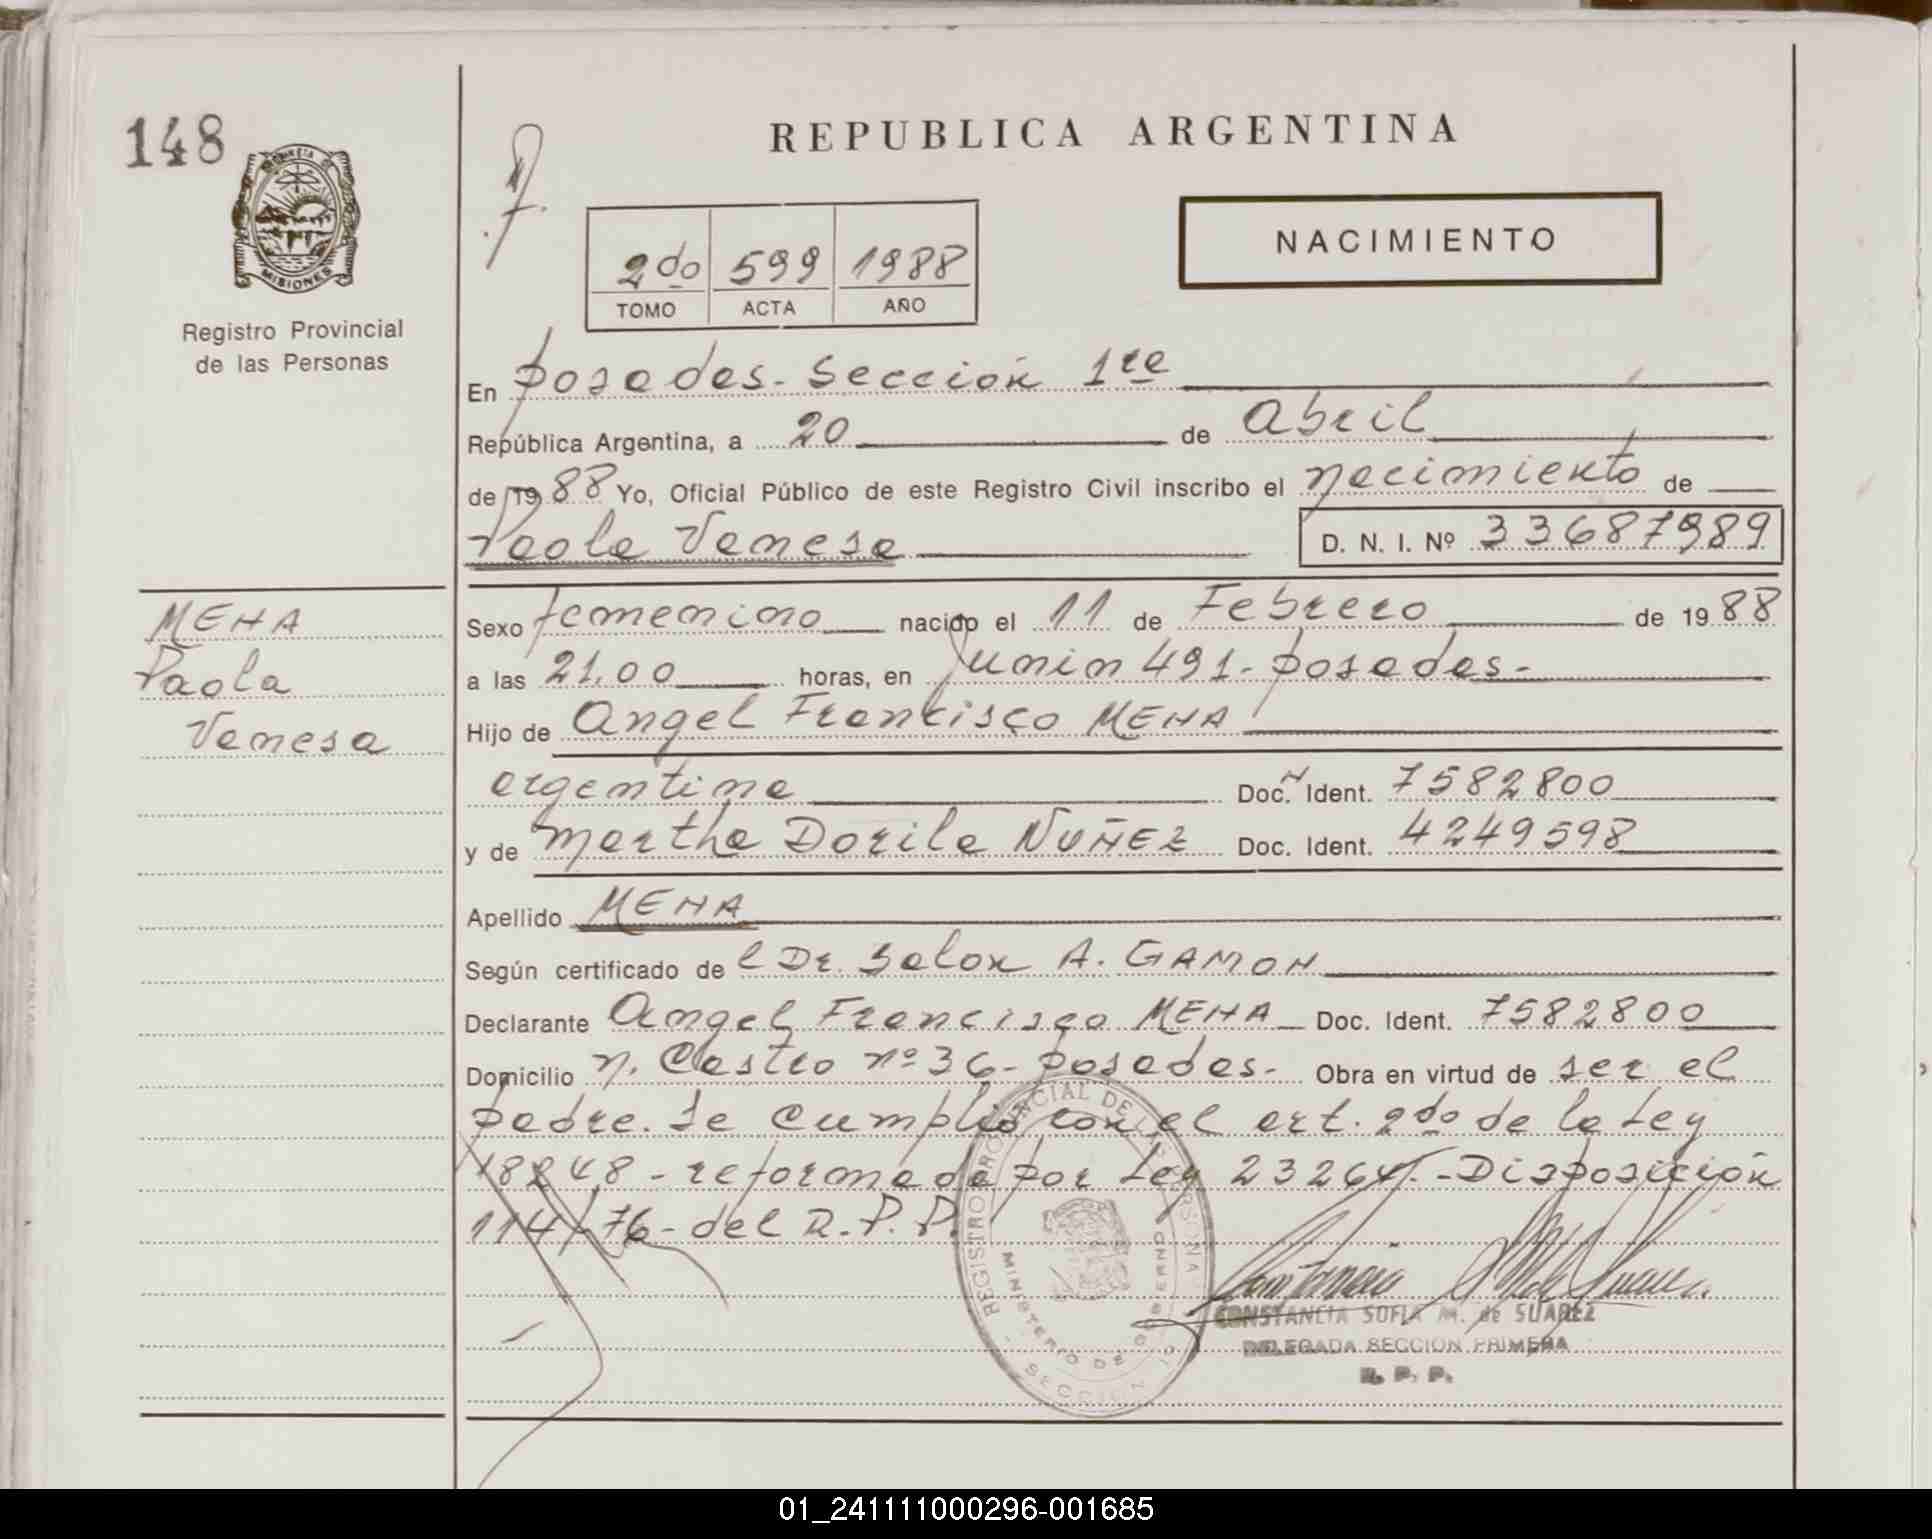 148
REPUBLICA ARGENTINA
MISIONES
Registro Provincial
de las Personas
2do 599 1988
TOMO ACTA AÑO
NACIMIENTO
En Posadas. Sección 1ra
República Argentina, a 20 de Abril
de 1988 Yo, Oficial Público de este Registro Civil inscribo el nacimiento de
Paola Vanesa D. N. I. Nº 33687989
MENA
Paola
Vanesa
Sexo femenino nacido el 11 de Febrero de 1988
a las 21.00 horas, en Junin 491- Posadas-
Hijo de Angel Francisco MENA
argentina Doc. Ident. 7582800
y de Martha Dorila NUÑEZ Doc. Ident. 4249598
Apellido MENA
Según certificado de l Dr. A. GAMON
Declarante Angel Francisco MENA Doc. Ident. 7582800
Domicilio N. Castro nº 36- Posadas- Obra en virtud de ser el
padre. Se cumplió con el art. 2do de la Ley
18248- reformada por Ley 23264.-Disposición
114/76- del R.P.P.
REGISTRO PROVINCIAL DE LAS PERSONAS
MINISTERIO DE GOBIERNO
SECCION
CONSTANCIA SOFIA M. de SUAREZ
DELEGADA SECCION PRIMERA
R. P. P.
01_241111000296-001685